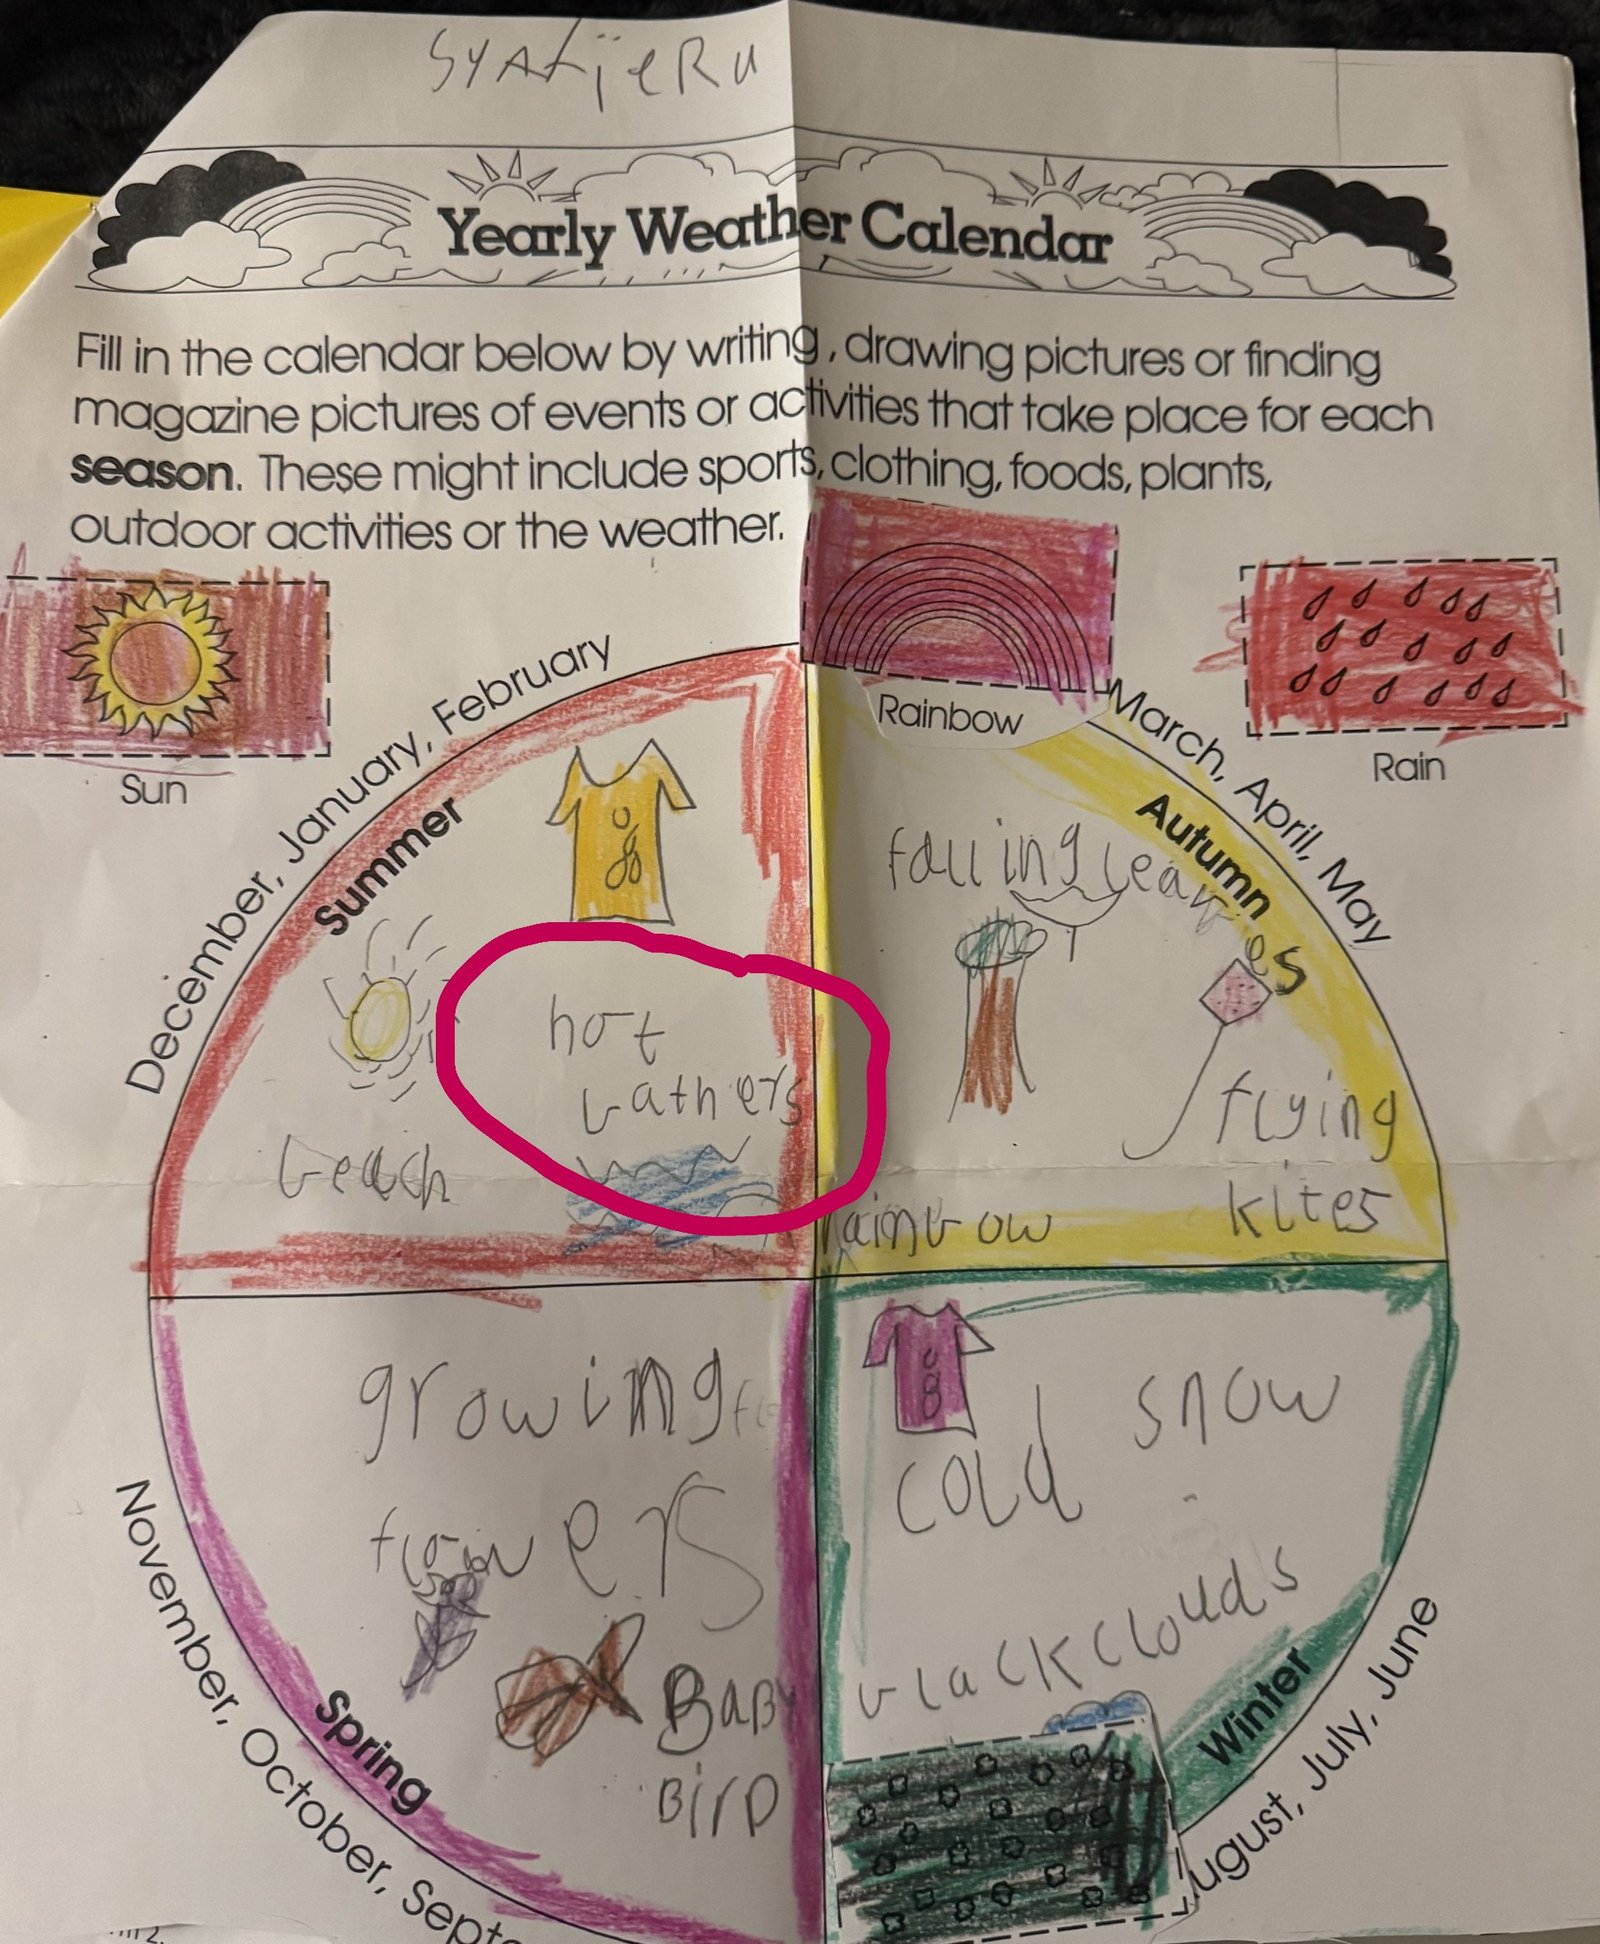 Yearly Weather Calendar
Fill in the calendar below by writing, drawing pictures or finding
magazine pictures of events or activities that take place for each
season. These might include sports, clothing, foods, plants,
outdoor activities or the weather.
Sun
Rainbow
Rain
December, January, February
Summer
hot
bathers
beach
March, April, May
Autumn
falling leaves
flying
kites
rainbow
November, October,
Spring
growing
flowers
BaBy
BirD
August, July, June
Winter
snow
cold
black clouds